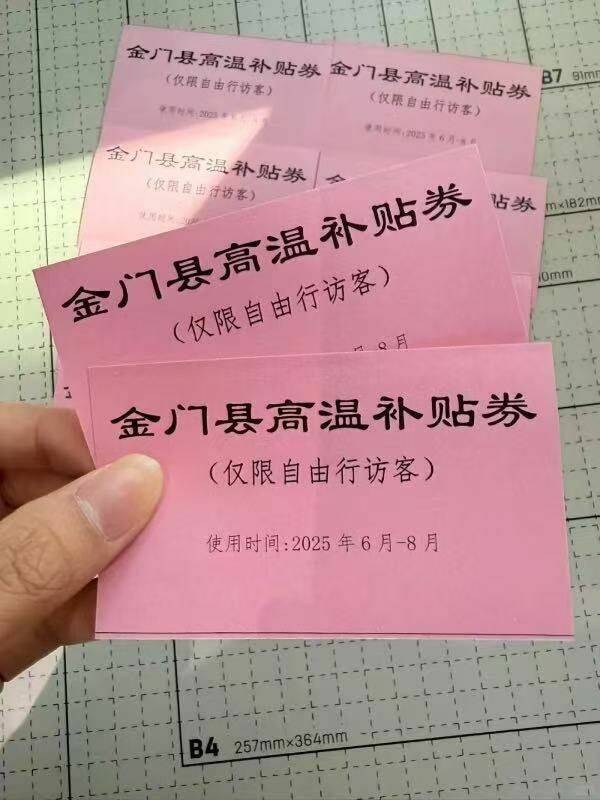 金门县高温补贴券
(仅限自由行访客)
使用时间:2025年6
金门县高温补贴券
(仅限自由行访客)
使用时间:2025年6月-8月
B7
金门县高温补贴券
(仅限自由行访客)
使用时间:
贴券
金门县高温补贴券
(仅限自由行访客)
月-8月
金门县高温补贴券
(仅限自由行访客)
使用时间:2025年6月-8月
B4 257mm×364mm